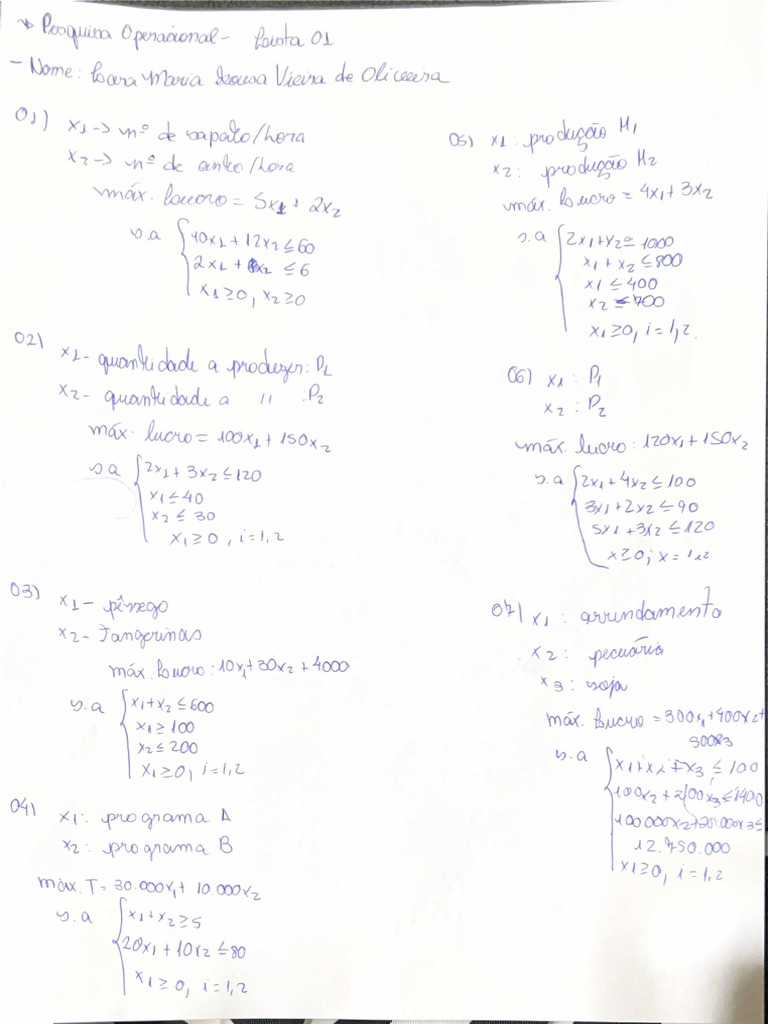 * Pesquisa Operacional - Lista 01
- Nome: Maria Sousa Vieira de Oliveira
01) x1 -> nº de sapato/hora
x2 -> nº de cinto/hora
máx. Lucro = 5x1 + 2x2
s.a { 10x1 + 12x2 ≤ 60
2x1 + x2 ≤ 6
x1 ≥ 0, x2 ≥ 0
02) x1 - quantidade a produzir: P1
x2 - quantidade a 〃 : P2
máx. lucro = 100x1 + 150x2
s.a { 2x1 + 3x2 ≤ 120
x1 ≤ 40
x2 ≤ 30
x1 ≥ 0, i = 1,2
03) x1 - pêssego
x2 - Tangerinas
máx. Lucro: 10x1 + 30x2 + 4000
s.a { x1 + x2 ≤ 600
x1 ≥ 100
x2 ≤ 200
x1 ≥ 0, i = 1,2
04) x1: programa A
x2: programa B
máx. T = 30.000x1 + 10.000x2
s.a { x1 + x2 ≥ 5
20x1 + 10x2 ≤ 80
x1 ≥ 0, i = 1,2
05) x1: produção M1
x2: produção M2
máx. Lucro = 4x1 + 3x2
s.a { 2x1 + x2 ≤ 1000
x1 + x2 ≤ 800
x1 ≤ 400
x2 ≤ 700
x1 ≥ 0, i = 1,2.
06) x1: P1
x2: P2
máx. lucro: 120x1 + 150x2
s.a { 2x1 + 4x2 ≤ 100
3x1 + 2x2 ≤ 90
5x1 + 3x2 ≤ 120
x ≥ 0; x = 1,2
07) x1: arrendamento
x2: pecuária
x3: soja
máx. Lucro = 300x1 + 400x2 +
500x3
s.a { x1 + x2 + x3 ≤ 100
100x2 + 200x3 ≤ 1400
100000x2 + 20.000x3 ≤
12.750.000
x1 ≥ 0, i = 1,2